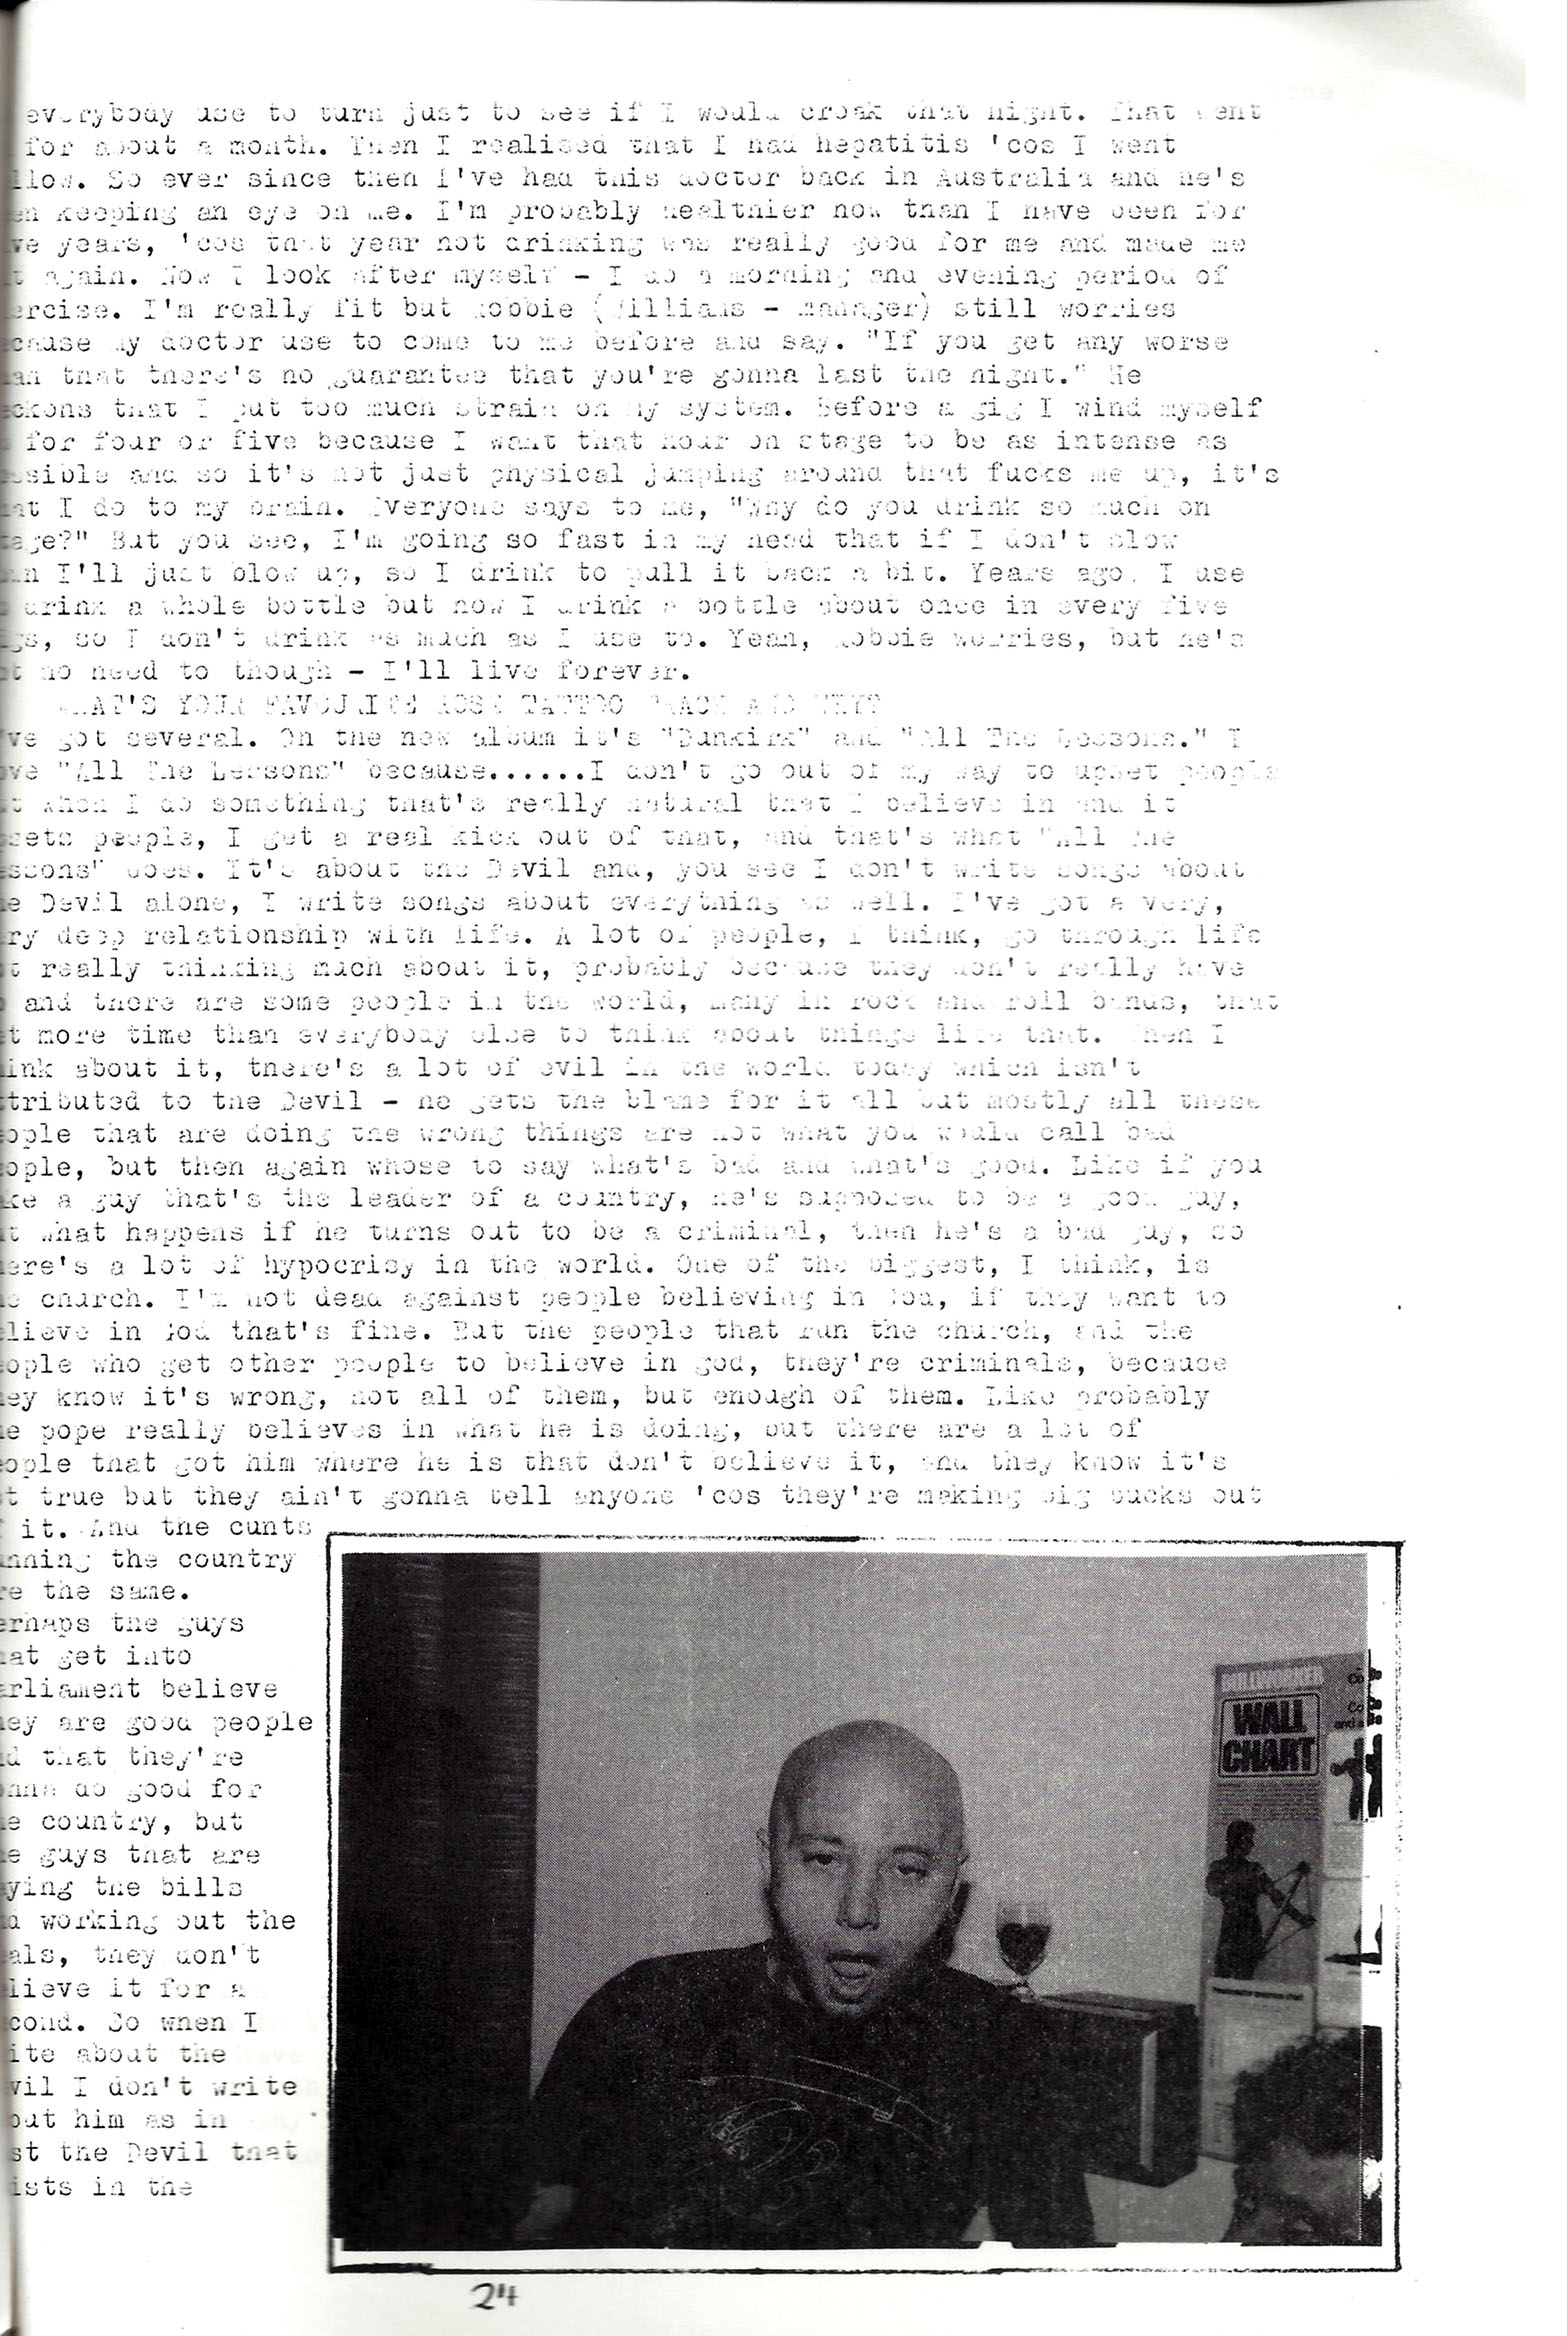 everybody use to turn just to see if I would croak that night. That went
for about a month. Then I realised that I had hepatitis 'cos I went
llow. So ever since then I've had this doctor back in Australia and he's
en keeping an eye on me. I'm probably healthier now than I have been for
ve years, 'cos that year not drinking was really good for me and made me
t again. Now I look after myself - I do a morning and evening period of
ercise. I'm really fit but Robbie (Williams - manager) still worries
cause my doctor use to come to me before and say. "If you get any worse
an that there's no guarantee that you're gonna last the night." He
ckons that I put too much strain on my system. Before a gig I wind myself
for four or five because I want that hour on stage to be as intense as
ssible and so it's not just physical jumping around that fucks me up, it's
at I do to my brain. Everyone says to me, "Why do you drink so much on
age?" But you see, I'm going so fast in my head that if I don't slow
n I'll just blow up, so I drink to pull it back a bit. Years ago, I use
drink a whole bottle but now I drink a bottle about once in every five
gs, so I don't drink as much as I use to. Yeah, Robbie worries, but he's
t no need to though - I'll live forever.
WHAT'S YOUR FAVOURITE ROSE TATTOO TRACK AND WHY?
've got several. On the new album it's "Dunkirk" and "All The Lessons." I
ove "All The Lessons" because......I don't go out of my way to upset people
t when I do something that's really natural that I believe in and it
sets people, I get a real kick out of that, and that's what "All The
ssons" does. It's about the Devil and, you see I don't write songs about
e Devil alone, I write songs about everything as well. I've got a very,
ry deep relationship with life. A lot of people, I think, go through life
t really thinking much about it, probably because they don't really have
and there are some people in the world, many in rock and roll bands, that
t more time than everybody else to think about things like that. When I
ink about it, there's a lot of evil in the world today which isn't
tributed to the Devil - he gets the blame for it all but mostly all these
ople that are doing the wrong things are not what you would call bad
ople, but then again whose to say what's bad and what's good. Like if you
ke a guy that's the leader of a country, he's supposed to be a good guy,
t what happens if he turns out to be a criminal, then he's a bad guy, so
ere's a lot of hypocrisy in the world. One of the biggest, I think, is
e church. I'm not dead against people believing in God, if they want to
lieve in God that's fine. But the people that run the church, and the
ople who get other people to believe in god, they're criminals, because
ey know it's wrong, not all of them, but enough of them. Like probably
e pope really believes in what he is doing, but there are a lot of
ople that got him where he is that don't believe it, and they know it's
t true but they ain't gonna tell anyone 'cos they're making big bucks out
it. And the cunts
nning the country
re the same.
erhaps the guys
hat get into
arliament believe
hey are good people
d that they're
onna do good for
e country, but
e guys that are
ying the bills
d working out the
als, they don't
lieve it for a
cond. So when I
ite about the
vil I don't write
out him as in
st the Devil that
ists in the
BULLWORKER
WALL
CHART
24